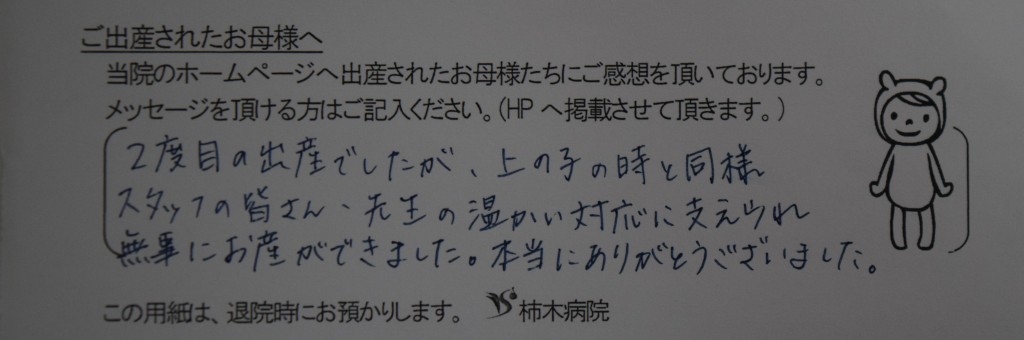 ご出産されたお母様へ
当院のホームページへ出産されたお母様たちにご感想を頂いております。
メッセージを頂ける方はご記入ください。(HPへ掲載させて頂きます。)
2度目の出産でしたが、上の子の時と同様
スタッフの皆さん、先生の温かい対応に支えられ
無事にお産ができました。本当にありがとうございました。
この用紙は、退院時にお預かりします。 柿木病院